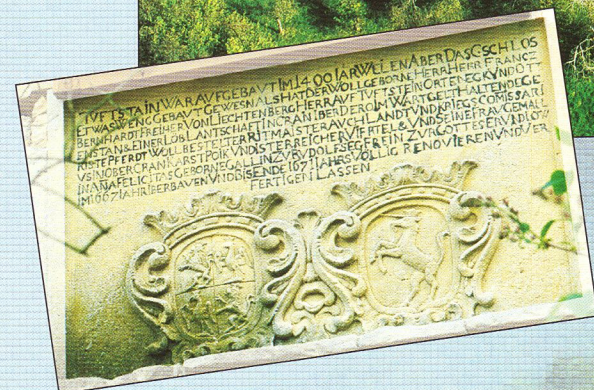 TVFTSTAIN WAR AVFGEBAVT IM 1400 IAR WEILEN ABER DAS GSCHLOS
ETWAS WENG GEBAVT GEWESN ALS HAT DER WOLLGEBORNE HERR HERR FRANZ
BERNHARDT FREIHER VON LIECHTENBERG HERR AVF TVFTSTEIN ORTENEGK VND OTT
ENSTAN & EINER LOBL LANTSCHAFT IN CRAN IBER DER IM WARTGELT HALTENDE GE
RISTE PFERDT WOLL BESTELTER RITMAISTER AVCH LANDT VND KRIEGS COMISSARI
VS IN OBER CRANKARST POIK VND ISTERREICHER VIERTEL & VND SEINE FRAV GEMALL
IN ANA FELICITAS GEBORNE GALLIN ZV RVDOLFSEGK FREIN ZVR GOTTES ER VND
IM 1667 IAHR IBERBAVEN VND DIS ENDE 1671 IAHRS VÖLLIG RENOVIEREN VND VER
FERTIGEN LASSEN